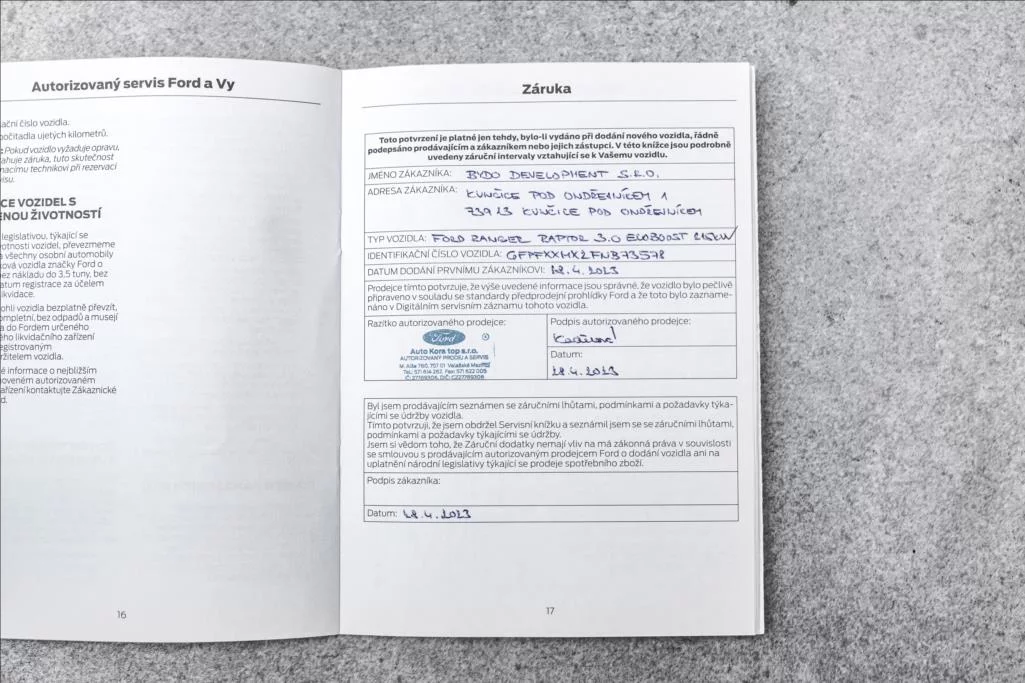 Autorizovaný servis Ford a Vy
ační číslo vozidla.
očitadla ujetých kilometrů.
: Pokud vozidlo vyžaduje opravu,
ahuje záruka, tuto skutečnost
macímu technikovi při rezervaci
isu.
CE VOZIDEL S
NOU ŽIVOTNOSTÍ
legislativou, týkající se
otnosti vozidel, převezmeme
a všechny osobní automobily
ová vozidla značky Ford o
ez nákladu do 3,5 tuny, bez
atum registrace za účelem
ikvidace.
ohli vozidla bezplatně převzít,
ompletní, bez odpadů a musejí
a do Fordem určeného
ého likvidačního zařízení
egistrovaným
ržitelem vozidla.
é informace o nejbližším
oveném autorizovaném
ařízení kontaktujte Zákaznické
d.
16
Záruka
Toto potvrzení je platné jen tehdy, bylo-li vydáno při dodání nového vozidla, řádně
podepsáno prodávajícím a zákazníkem nebo jejich zástupci. V této knížce jsou podrobně
uvedeny záruční intervaly vztahující se k Vašemu vozidlu.
JMÉNO ZÁKAZNÍKA: BYDO DEVELOPMENT S.R.O.
ADRESA ZÁKAZNÍKA: KUNČICE POD ONDŘEJNÍKEM 1
739 13 KUNČICE POD ONDŘEJNÍKEM
TYP VOZIDLA: FORD RANGER RAPTOR 3.0 ECOBOOST 215kW
IDENTIFIKAČNÍ ČÍSLO VOZIDLA: 6FPFXXMX2FNB73578
DATUM DODÁNÍ PRVNÍMU ZÁKAZNÍKOVI: 28.4.2023
Prodejce tímto potvrzuje, že výše uvedené informace jsou správné, že vozidlo bylo pečlivě
připraveno v souladu se standardy předprodejní prohlídky Ford a že toto bylo zazname-
náno v Digitálním servisním záznamu tohoto vozidla.
Razítko autorizovaného prodejce:
Ford
Auto Kora top s.r.o.
AUTORIZOVANÝ PRODEJ A SERVIS
M. Alše 780, 757 01 Valašské Meziříčí
Tel.: 571 614 262, Fax: 571 622 005
IČ: 27769306, DIČ: CZ27769306
Podpis autorizovaného prodejce:
Datum:
28.4.2023
Byl jsem prodávajícím seznámen se záručními lhůtami, podmínkami a požadavky týka-
jícími se údržby vozidla.
Tímto potvrzuji, že jsem obdržel Servisní knížku a seznámil jsem se se záručními lhůtami,
podmínkami a požadavky týkajícími se údržby.
Jsem si vědom toho, že Záruční dodatky nemají vliv na má zákonná práva v souvislosti
se smlouvou s prodávajícím autorizovaným prodejcem Ford o dodání vozidla ani na
uplatnění národní legislativy týkající se prodeje spotřebního zboží.
Podpis zákazníka:
Datum: 28.4.2023
17